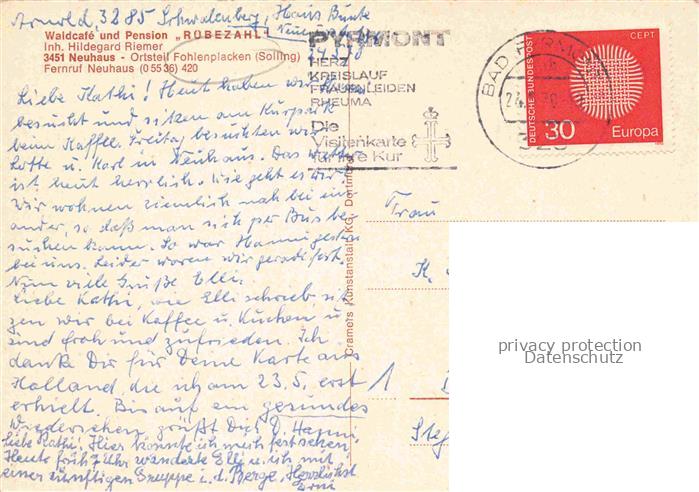 Arnold, 3285 Schwalenberg, Haus Bunte
Waldcafé und Pension „RÜBEZAHL"
Inh. Hildegard Riemer
3451 Neuhaus - Ortsteil Fohlenplacken (Solling)
Fernruf Neuhaus (05536) 420
Liebe Kathi! Heut haben wir
besucht und sitzen am Kurpark
beim Kaffee. Freitag besuchten wir
Lotte u. Karl in Neuhaus. Das
ist heut herrlich. Wie geht es
Wir wohnen ziemlich nah bei ein-
ander, so daß man sich per Bus be-
suchen kann. So war Hanni gestern
bei uns. Leider waren wir gerade fort.
Nun viele Grüße Elli.
Liebe Kathi, wie Elli schrieb si-
zen wir bei Kaffee u. Kuchen u.
sind froh und zufrieden. Ich
danke Dir für Deine Karte aus
Holland, die ich am 23.5. erst
erhielt. Bis auf ein gesundes
Wiedersehen grüßt Dich D. Hanni
Liebe Kathi! Hier könnte ich mich festsehen.
Heute früh 7 Uhr wanderte Elli u. ich mit
einer zünftigen Gruppe i. d. Berge. Herzlichst
PYRMONT
HERZ
KREISLAUF
FRAUENLEIDEN
RHEUMA
Die
Visitenkarte
für Ihre Kur
BAD PYRMONT
DEUTSCHE BUNDESPOST
CEPT
30
Europa
Cramers Kunstanstalt KG. Dortmund
Frau
K.
1
privacy protection
Datenschutz